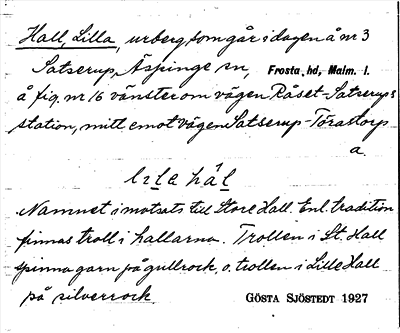 Hall, Lilla, urberg, som går i dagen å nr 3
Satserup, Äspinge sn, Frosta hd, Malm. l.
å fig. nr 16 vänster om vägen Råset-Satserups
station, mitt emot vägen Satserup-Törastorp
a.
lila hál
Namnet i motsats till Store Hall. Enl. tradition
finnas troll i hallarna. Trollen i St. Hall
spinna garn på gullrock, o. trollen i Lille Hall
på silverrock.
GÖSTA SJÖSTEDT 1927